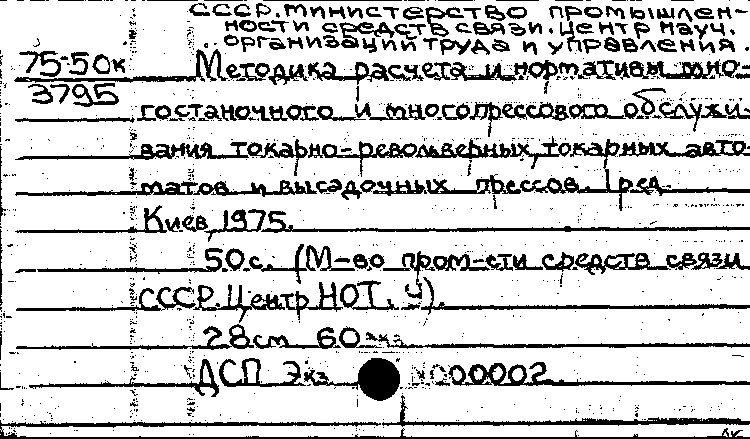 СССР. Министерство промышлен-
ности средств связи. Центр науч.
организации труда и управления.
75-50к
3795
Методика расчета и нормативы мно-
гостаночного и многопрессового обслужи-
вания токарно-револьверных, токарных авто-
матов и высадочных прессов. Ред.
Киев, 1975.
50с. (М-во пром-сти средств связи
СССР. Центр НОТ и У).
28см 60экз
ДСП Экз N000002.